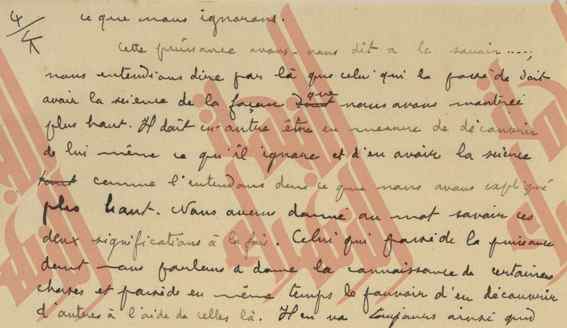 4/4
ce que nous ignorons.
Cette puissance avons-nous dit a le savoir ....;
nous entendions dire par là que celui qui la possède doit
avoir la science de la façon dont que nous avons montrée
plus haut. Il doit en outre être en mesure de découvrir
de lui même ce qu'il ignore et d'en avoir la science
tout comme l'entendons dans ce que nous avons expliqué
plus haut. Nous avons donné au mot savoir ces
deux significations à la fois. Celui qui possède la puissance
dont nous parlons a donc la connaissance de certaines
choses et possède en même temps le pouvoir d'en découvrir
d'autres à l'aide de celles là. Il en va toujours ainsi qud